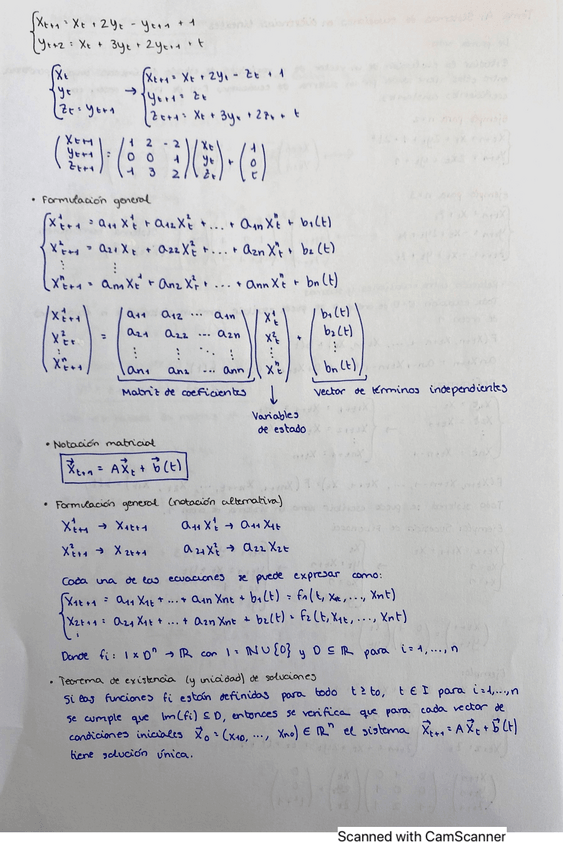 {Xt+1 = Xt + 2yt - yt+1 + 1
{yt+2 = Xt + 3yt + 2yt+1 + t
{Xt
{yt
{Zt = yt+1
→
{Xt+1 = Xt + 2yt - Zt + 1
{yt+1 = Zt
{Zt+1 = Xt + 3yt + 2Zt + t
(Xt+1 yt+1 Zt+1) = (1 2 -2 / 0 0 1 / 1 3 2) (Xt yt Zt) + (1 0 t)
• Formulación general
{X¹t+1 = a11 X¹t + a12 X²t + ... + a1n Xⁿt + b1(t)
{X²t+1 = a21 Xt + a22 X²t + ... + a2n Xⁿt + b2(t)
⋮ ⋮
{Xⁿt+1 = an1 Xt¹ + an2 X²t + ... + ann Xⁿt + bn(t)
(X¹t+1 X²t+1 ⋮ Xⁿt+1) = (a11 a12 ... a1n / a21 a22 ... a2n / ⋮ ⋮ ⋱ ⋮ / an1 an2 ... ann) (X¹t X²t ⋮ Xⁿt) + (b1(t) b2(t) ⋮ bn(t))
Matriz de coeficientes
Vector de términos independientes
↓
Variables
de estado
• Notación matricial
X⃗t+1 = AX⃗t + b⃗(t)
• Formulación general (notación alternativa)
X¹t+1 → X1t+1 a11 X¹t → a11 X1t
X²t+1 → X2t+1 a21 X²t → a22 X2t
Cada una de las ecuaciones se puede expresar como:
{X1t+1 = a11 X1t + ... + a1n Xnt + b1(t) = f1(t, X1t, ..., Xnt)
{X2t+1 = a21 X1t + ... + a2n Xnt + b2(t) = f2(t, X1t, ..., Xnt)
⋮
Donde fi: I x Dⁿ → ℝ con I = ℕ ∪ {0} y D ⊆ ℝ para i = 1, ..., n
• Teorema de existencia (y unicidad) de soluciones
Si las funciones fi están definidas para todo t ≥ to, t ∈ I para i=1,...,n
se cumple que Im(fi) ⊆ D, entonces se verifica que para cada vector de
condiciones iniciales X⃗0 = (X10, ..., Xn0) ∈ ℝⁿ el sistema X⃗t+1 = AX⃗t + b⃗(t)
tiene solución única.
Scanned with CamScanner